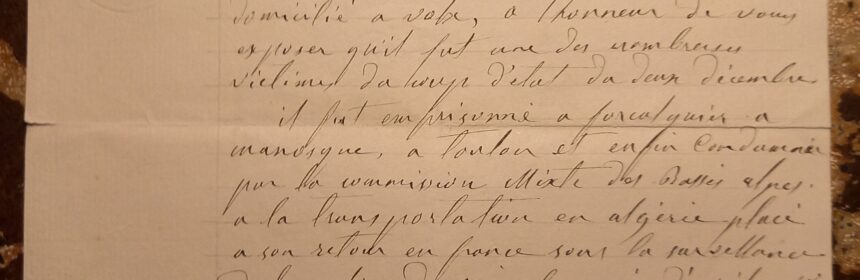 domicilié a volx, a l'honneur de vous
exposer qu'il fut une des nombreuses
victimes du coup d'état du deux décembre
il fut emprisonné a forcalquier a
manosque, a toulon et enfin condamnée
par la commission Mixte des Basses alpes.
a la transportation en algérie placé
a son retour en france sous la surveillance